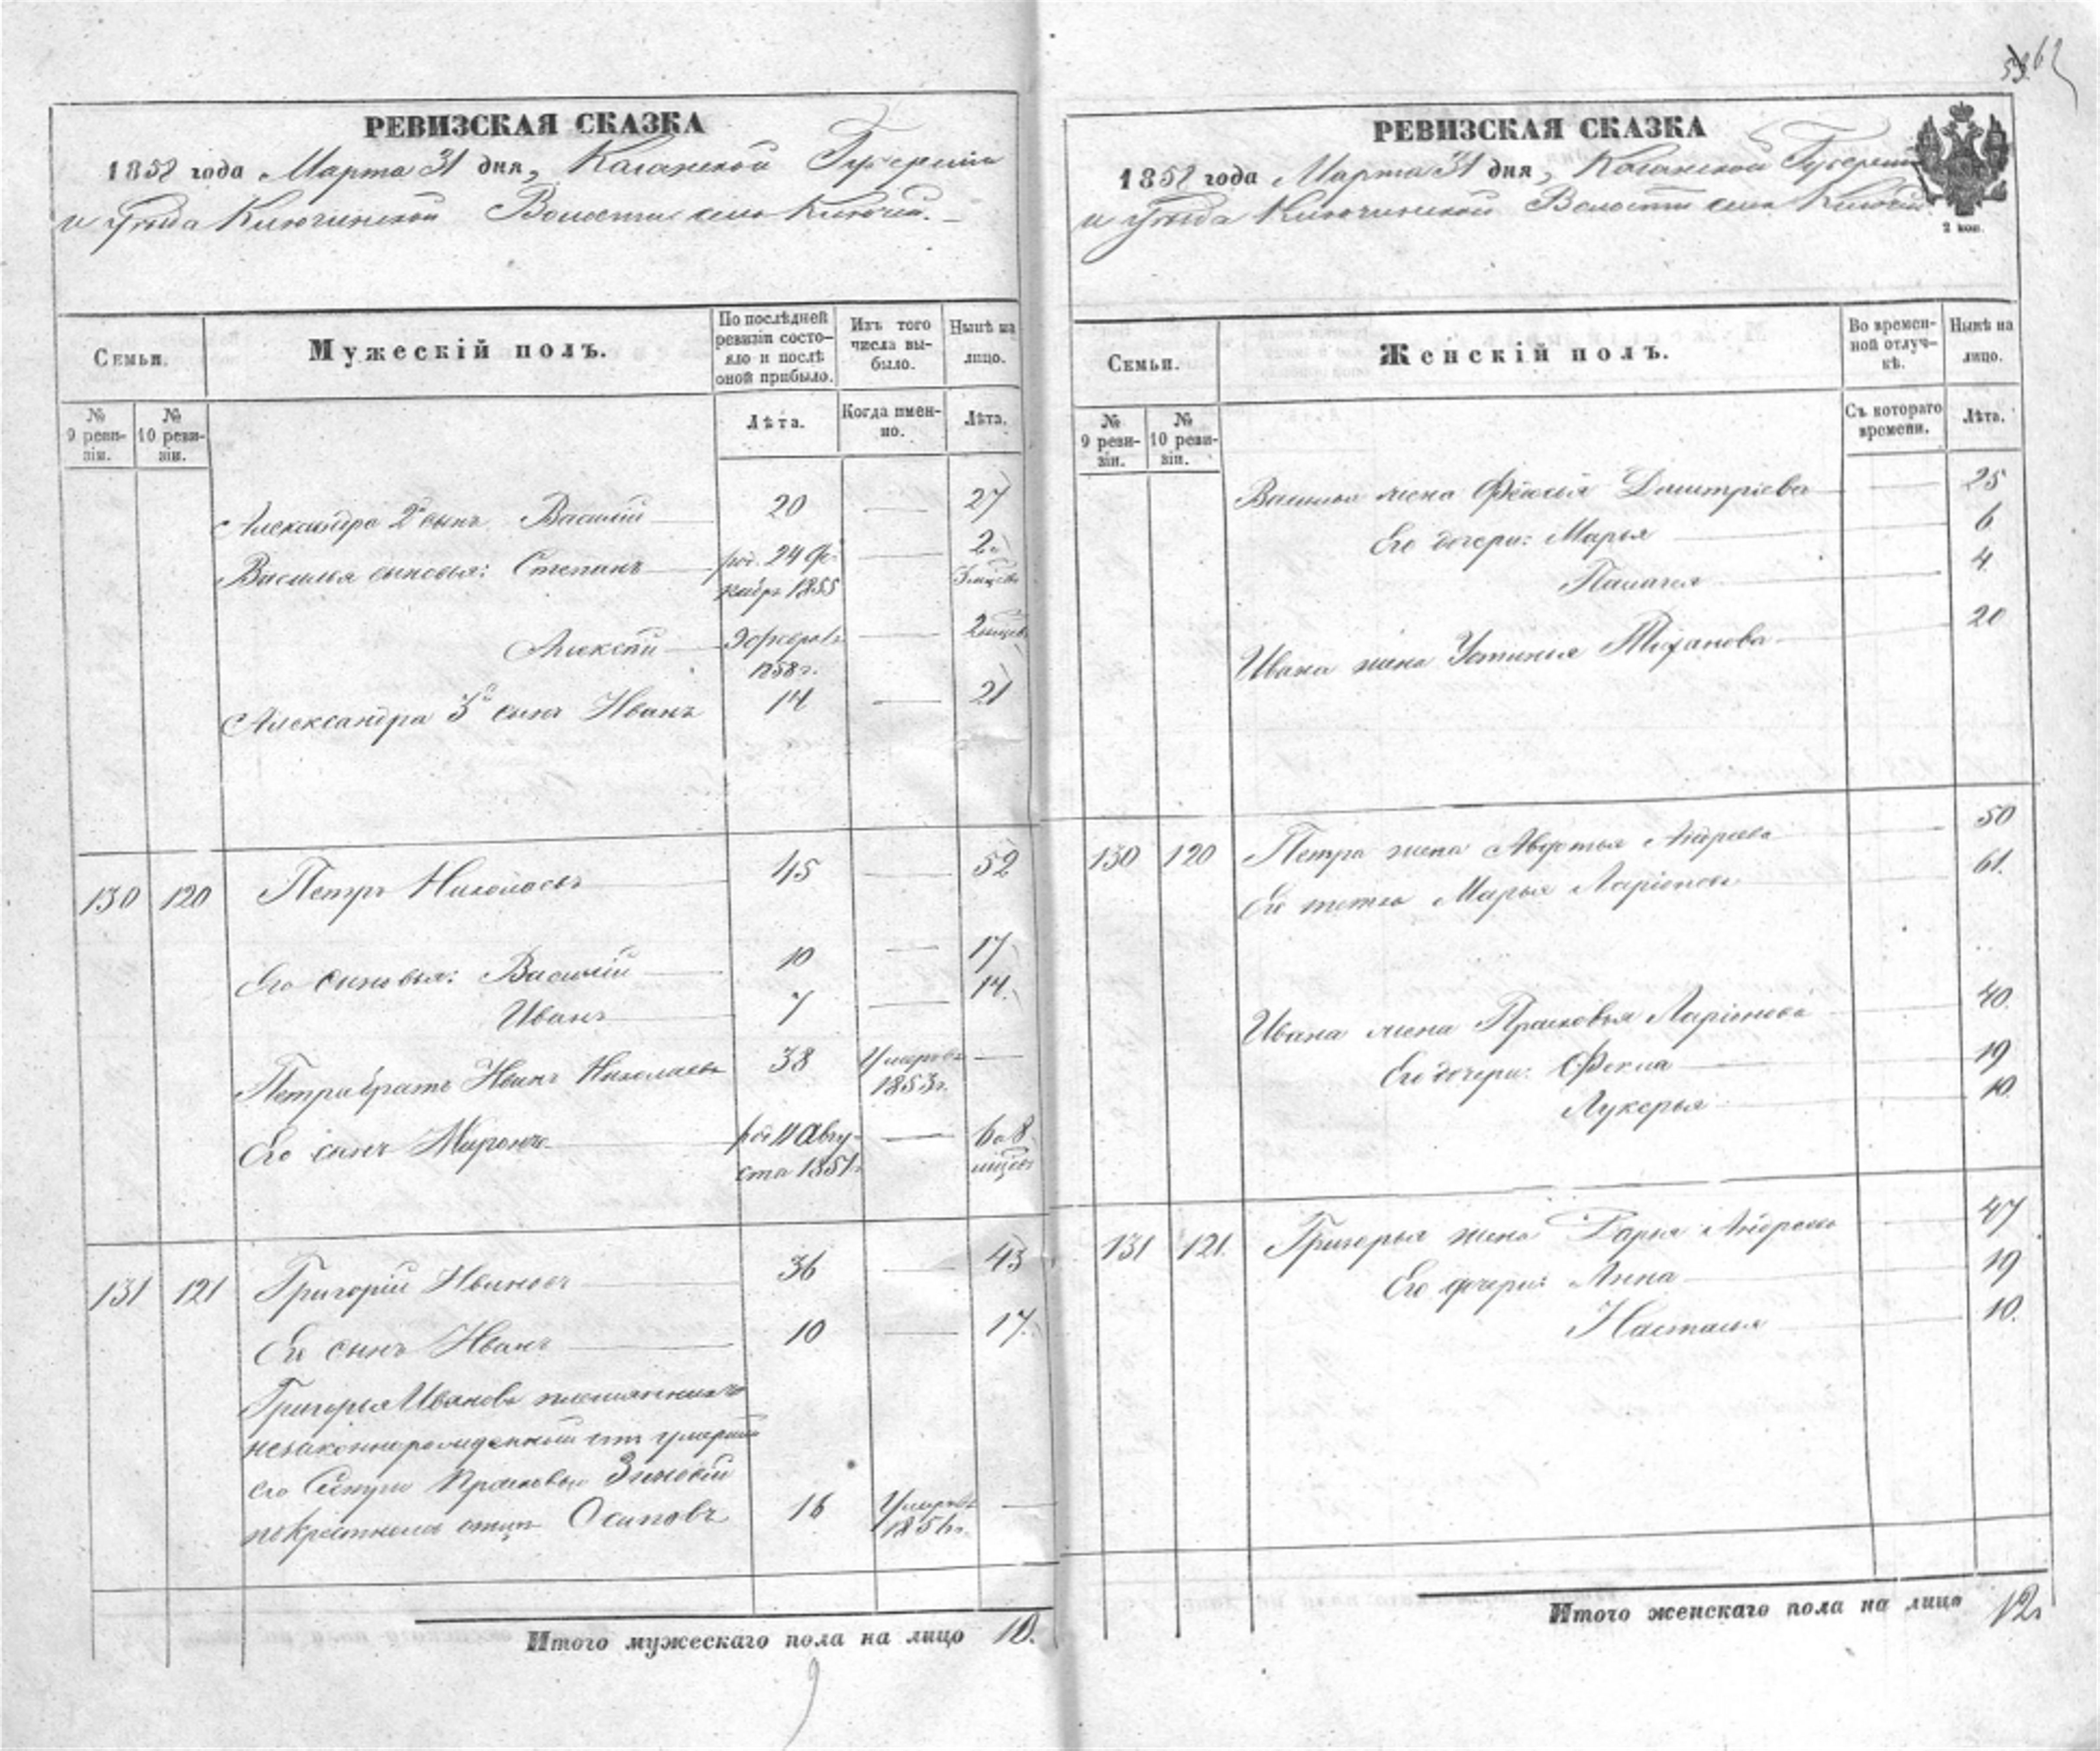 62
РЕВИЗСКАЯ СКАЗКА
1858 года Марта 31 дня, Казанской Губерніи
и уѣзда Ключинской Волости села Ключей.
Семьи.
Мужескій полъ.
По послѣдней ревизіи состояло и послѣ оной прибыло.
Изъ того числа выбыло.
Нынѣ на лицо.
№ 9 ревизіи.
№ 10 ревизіи.
Лѣта.
Когда именно.
Лѣта.
Александра 2й сынъ Василій 20 — 27
Василья сыновья: Степанъ род. 24 декабр 1855 — 2 и 3 мѣсев
Алексѣй Эфеврал 1858 г. — 2 мѣсев
Александра 3й сынъ Иванъ 14 — 21
130 120 Петръ Николаевъ 45 — 52
Его сыновья: Василій 10 — 17
Иванъ 7 — 14.
Петра братъ Иванъ Николаевъ 38 Умеръ въ 1853 г. —
Его сынъ Миронъ род 11 августа 1851 г — 6 и 8 мѣсев
131 121 Григорій Ивановъ 36 — 43
Его сынъ Иванъ 10 — 17.
Григорья Иванова племянникъ
незаконнорожденный отъ умершей
его Сестры Прасковьи Зиновій
по крестному отцу Осиповъ 16 Умеръ въ —
Итого мужескаго пола на лицо 10.
РЕВИЗСКАЯ СКАЗКА
1858 года Марта 31 дня, Казанской Губерніи
и уѣзда Ключинской Волости села Ключей
2 коп.
Семьи.
Женскій полъ.
Во временной отлучкѣ.
Нынѣ на лицо.
№ 9 ревизіи.
№ 10 ревизіи.
Съ котораго времени.
Лѣта.
Василья жена Фекла Дмитріева — 25
Его дочери: Марья — 6
Палагея — 4.
Ивана жена Устинья — 20
130 120 Петра жена Авдотья Андреева — 50
Его тетка Марья Ларіонова — 61.
Ивана жена Прасковья Ларіонова — 40.
Его дочери: Фекла — 19
Лукерья — 10.
131 121. Григорья жена Дарья Андреева — 47
Его дочери: Анна — 19
Настасья — 10.
Итого женскаго пола на лицо 12.